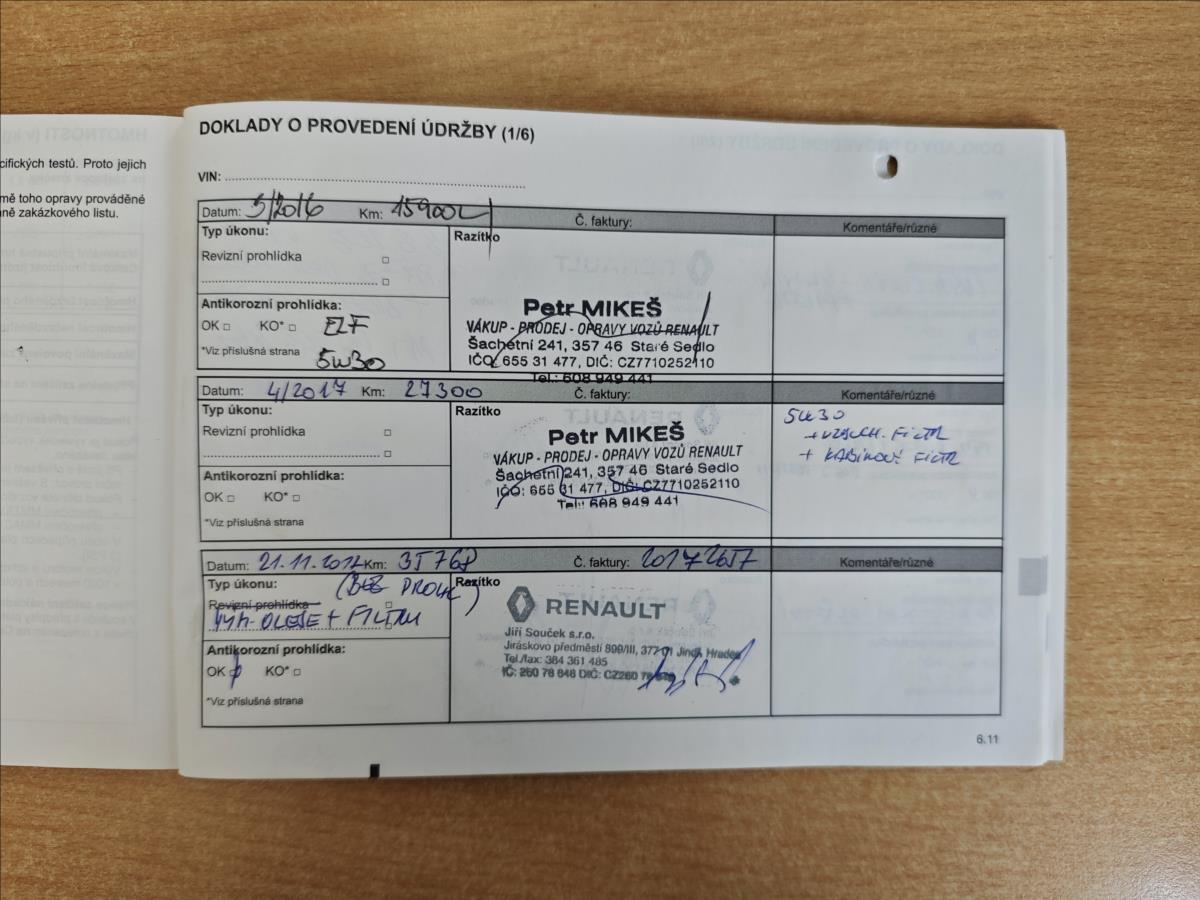 cifických testů. Proto jejich
mě toho opravy prováděné
ně zakázkového listu.
DOKLADY O PROVEDENÍ ÚDRŽBY (1/6)
VIN:
Datum: 5/2016 Km: 15900 Č. faktury: Komentáře/různé
Typ úkonu: Razítko
Revizní prohlídka
Antikorozní prohlídka:
OK KO* ELF
*Viz příslušná strana 5W30
Petr MIKEŠ
VÁKUP - PRODEJ - OPRAVY VOZŮ RENAULT
Šachetní 241, 357 46 Staré Sedlo
IČO: 655 31 477, DIČ: CZ7710252110
Tel.: 608 949 441
Datum: 4/2017 Km: 27300 Č. faktury: Komentáře/různé
Typ úkonu: Razítko
Revizní prohlídka
Antikorozní prohlídka:
OK KO*
*Viz příslušná strana
Petr MIKEŠ
VÁKUP - PRODEJ - OPRAVY VOZŮ RENAULT
Šachetní 241, 357 46 Staré Sedlo
IČO: 655 31 477, DIČ: CZ7710252110
Tel.: 608 949 441
5W30
+ VZDUCH. FILTR
+ KABINOVÝ FILTR
Datum: 21.11.2017 Km: 35768 Č. faktury: 20172657 Komentáře/různé
Typ úkonu: (BEZ PROHL) Razítko
Revizní prohlídka
VÝM. OLEJE + FILTRU
Antikorozní prohlídka:
OK KO*
*Viz příslušná strana
RENAULT
Jiří Souček s.r.o.
Jiráskovo předměstí 899/III, 377 01 Jindř. Hradec
Tel./fax: 384 361 485
IČ: 260 78 646 DIČ: CZ260 78 646
6.11